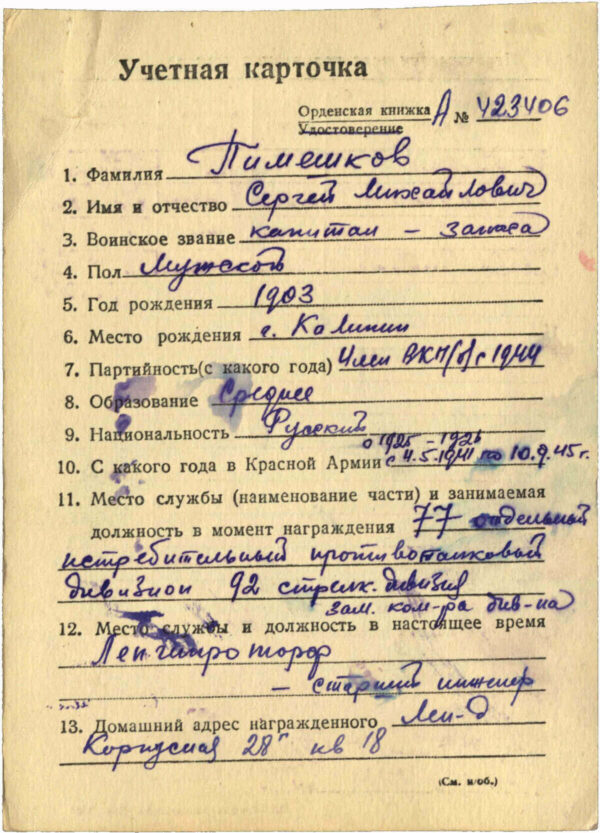 Учетная карточка
Орденская книжка А № 423406
Удостоверение
1. Фамилия Пимешков
2. Имя и отчество Сергей Михайлович
3. Воинское звание капитан – запаса
4. Пол Мужской
5. Год рождения 1903
6. Место рождения г. Калинин
7. Партийность(с какого года) Член ВКП/б/ с 1944
8. Образование Среднее
9. Национальность Русский
с 1925 – 1926
10. С какого года в Красной Армии с 4.5.1941 по 10.9.45г.
11. Место службы (наименование части) и занимаемая
должность в момент награждения 77 отдельный
истребительный противотанковый
дивизион 92 стрелк. дивизия
зам. ком-ра див-на
12. Место службы и должность в настоящее время
Ленгипроторф
– старший инженер
13. Домашний адрес награжденного Лен-д
Корпусная 28 кв 18
(См. н/об.)